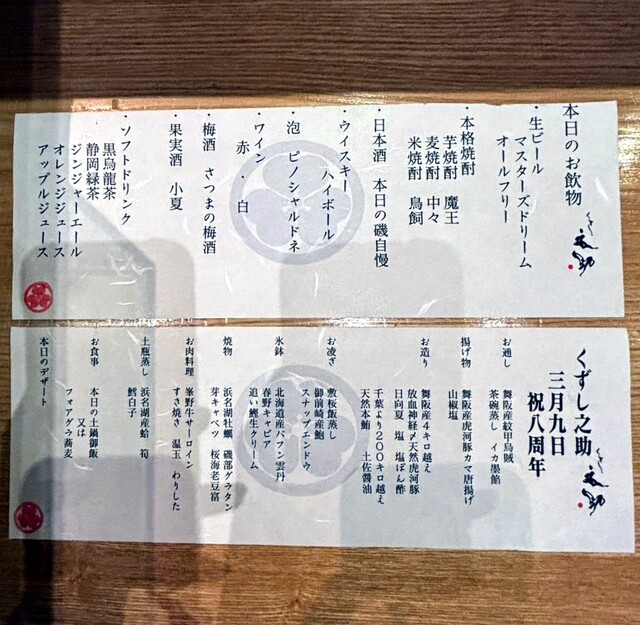 本日のお飲物
・生ビール
マスターズドリーム
オールフリー
・本格焼酎
芋焼酎 魔王
麦焼酎 中々
米焼酎 鳥飼
・日本酒 本日の磯自慢
・ウイスキー
ハイボール
・泡 ピノシャルドネ
・ワイン
赤・白
・梅酒 さつまの梅酒
・果実酒 小夏
・ソフトドリンク
黒烏龍茶
静岡緑茶
ジンジャーエール
オレンジジュース
アップルジュース
くずし之助
三月九日
祝八周年
お通し 舞阪産紋甲烏賊
茶碗蒸し イカ墨餡
揚げ物 舞阪産虎河豚カマ唐揚げ
山椒塩
お造り 舞阪産4キロ越え
放血神経〆天然虎河豚
日向夏 塩 塩ぽん酢
千葉より200キロ越え
天然本鮪 土佐醤油
お凌ぎ 敷桜飯蒸し
御前崎産鮑
スナップエンドウ
氷鉢 北海道産バフン雲丹
春野キャビア
追い鰹生クリーム
焼物 浜名湖牡蠣 磯部グラタン
芽キャベツ 桜海老豆富
お肉料理 峯野牛サーロイン
すき焼き 温玉 わりした
土瓶蒸し 浜名湖産蛤 筍
鱈白子
お食事 本日の土鍋御飯
又は
フォアグラ蕎麦
本日のデザート